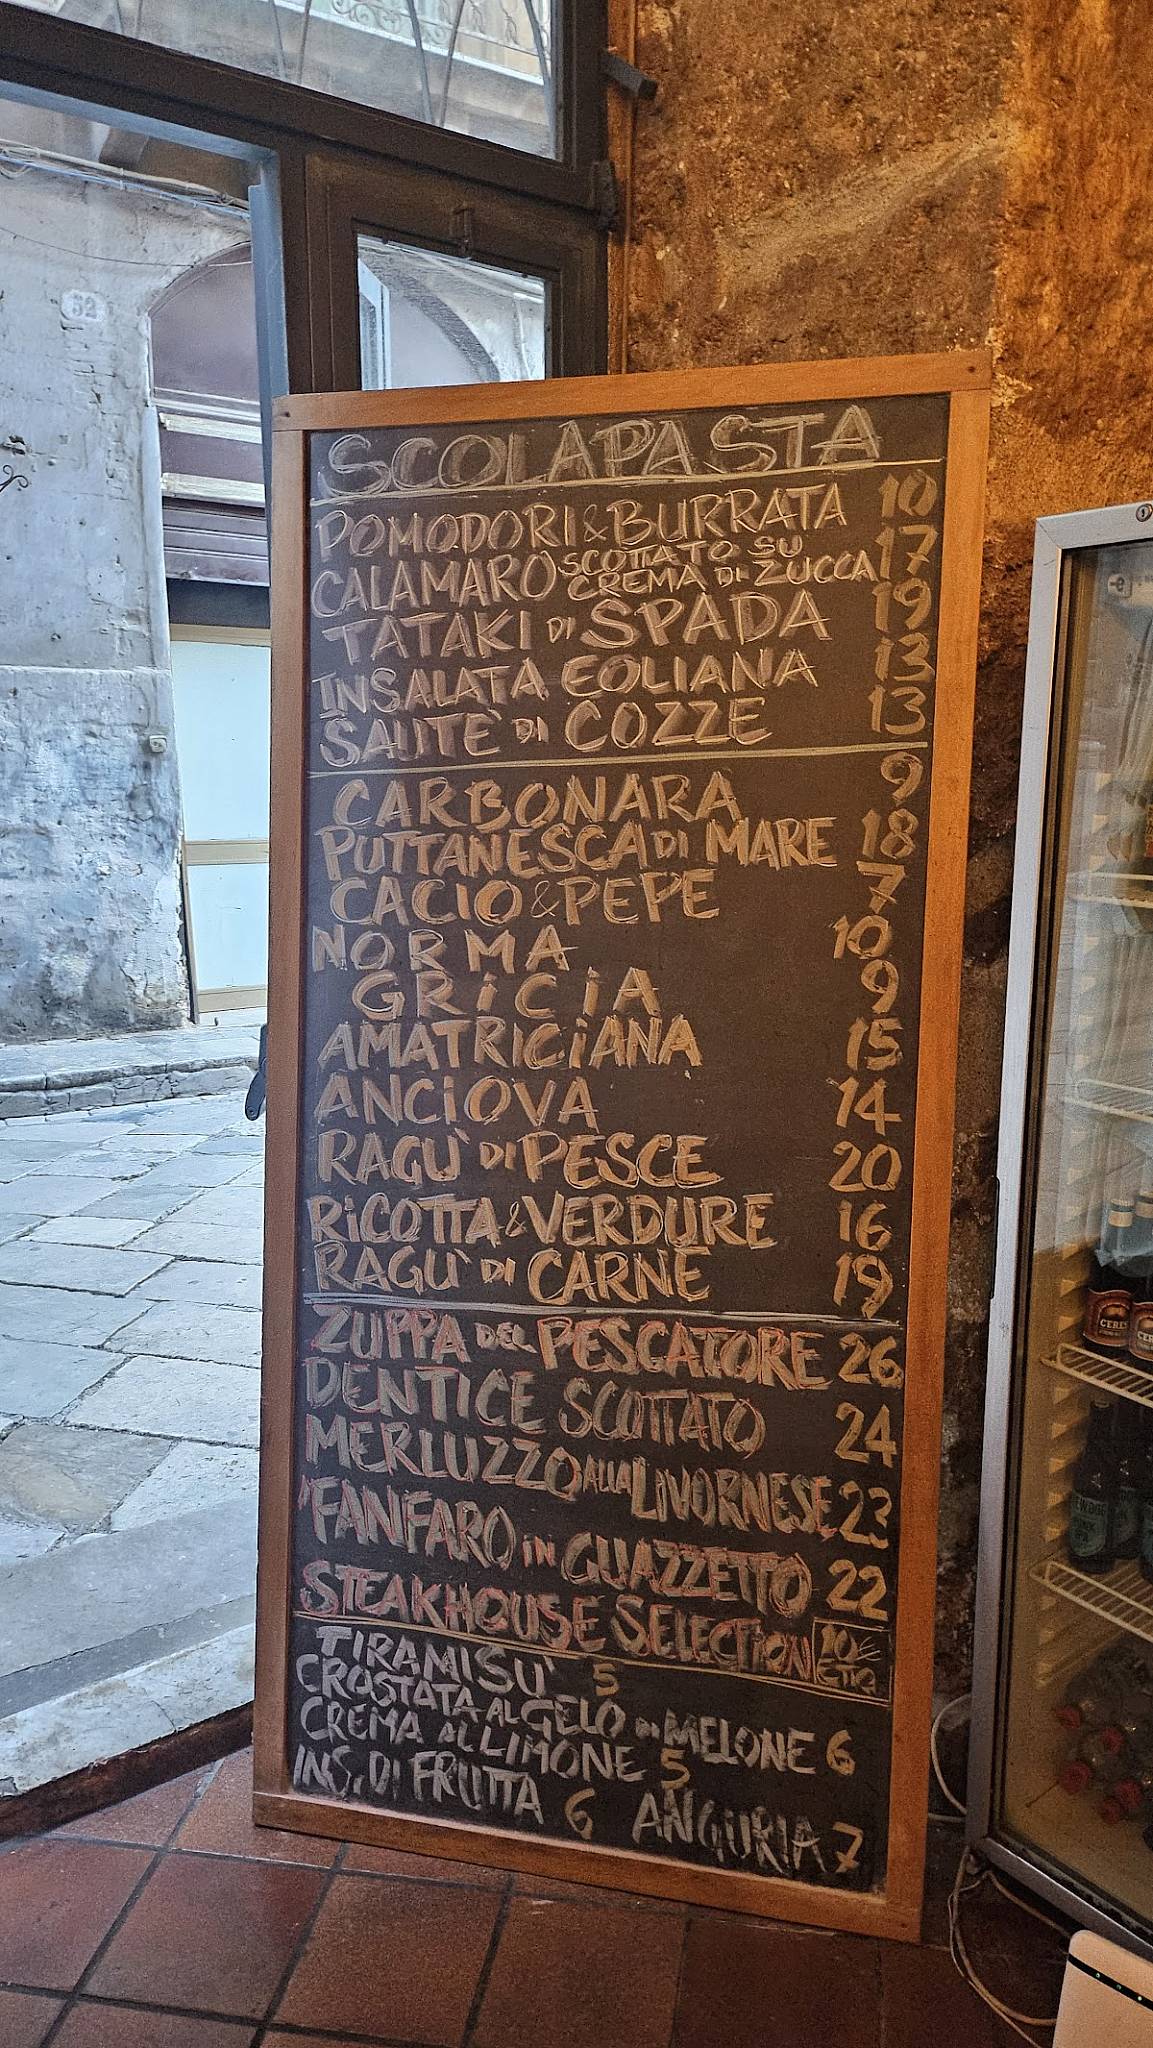 52
SCOLAPASTA
POMODORI & BURRATA 10
CALAMARO SCOTTATO SU CREMA DI ZUCCA 17
TATAKI DI SPADA 19
INSALATA EOLIANA 13
SAUTÈ DI COZZE 13
CARBONARA 9
PUTTANESCA DI MARE 18
CACIO & PEPE 7
NORMA 10
GRiCiA 9
AMATRICiANA 15
ANCiOVA 14
RAGÙ DI PESCE 20
RiCOTTA & VERDURE 16
RAGÙ DI CARNE 19
ZUPPA DEL PESCATORE 26
DENTICE SCOTTATO 24
MERLUZZO ALLA LIVORNESE 23
FANFARO IN GUAZZETTO 22
STEAKHOUSE SELECTION 10€ ETTO
TIRAMISU' 5
CROSTATA AL GELO DI MELONE 6
CREMA AL LIMONE 5
INS. DI FRUTTA 6 ANGURIA 7
CERES